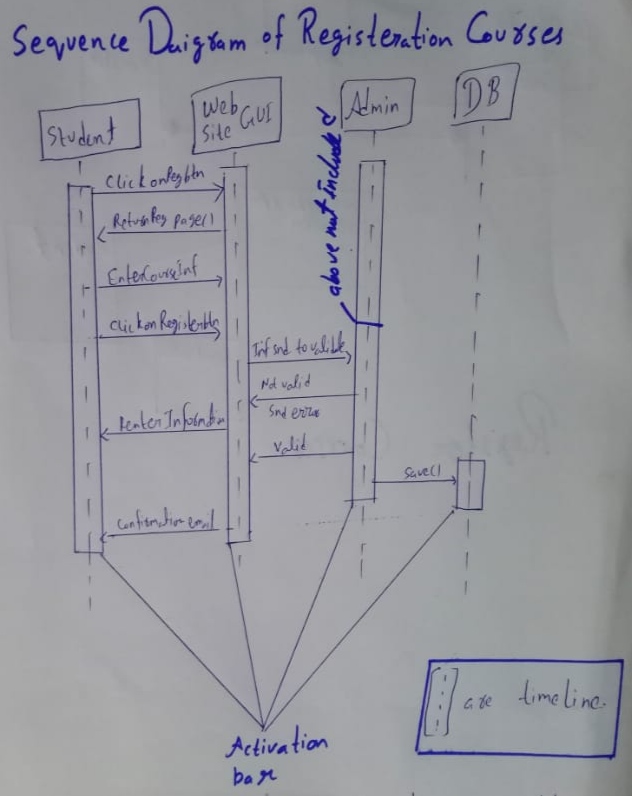 Sequence Daigram of Registeration Courses
Student
Web
Site GUI
Admin
DB
above not included
Click on Reg btn
Return Reg page()
Enter Course Inf
Click on Register btn
Inf snd to validate
Not valid
Snd error
Renter Information
Valid
save()
Confirmation email
Activation
bar
are timeline.